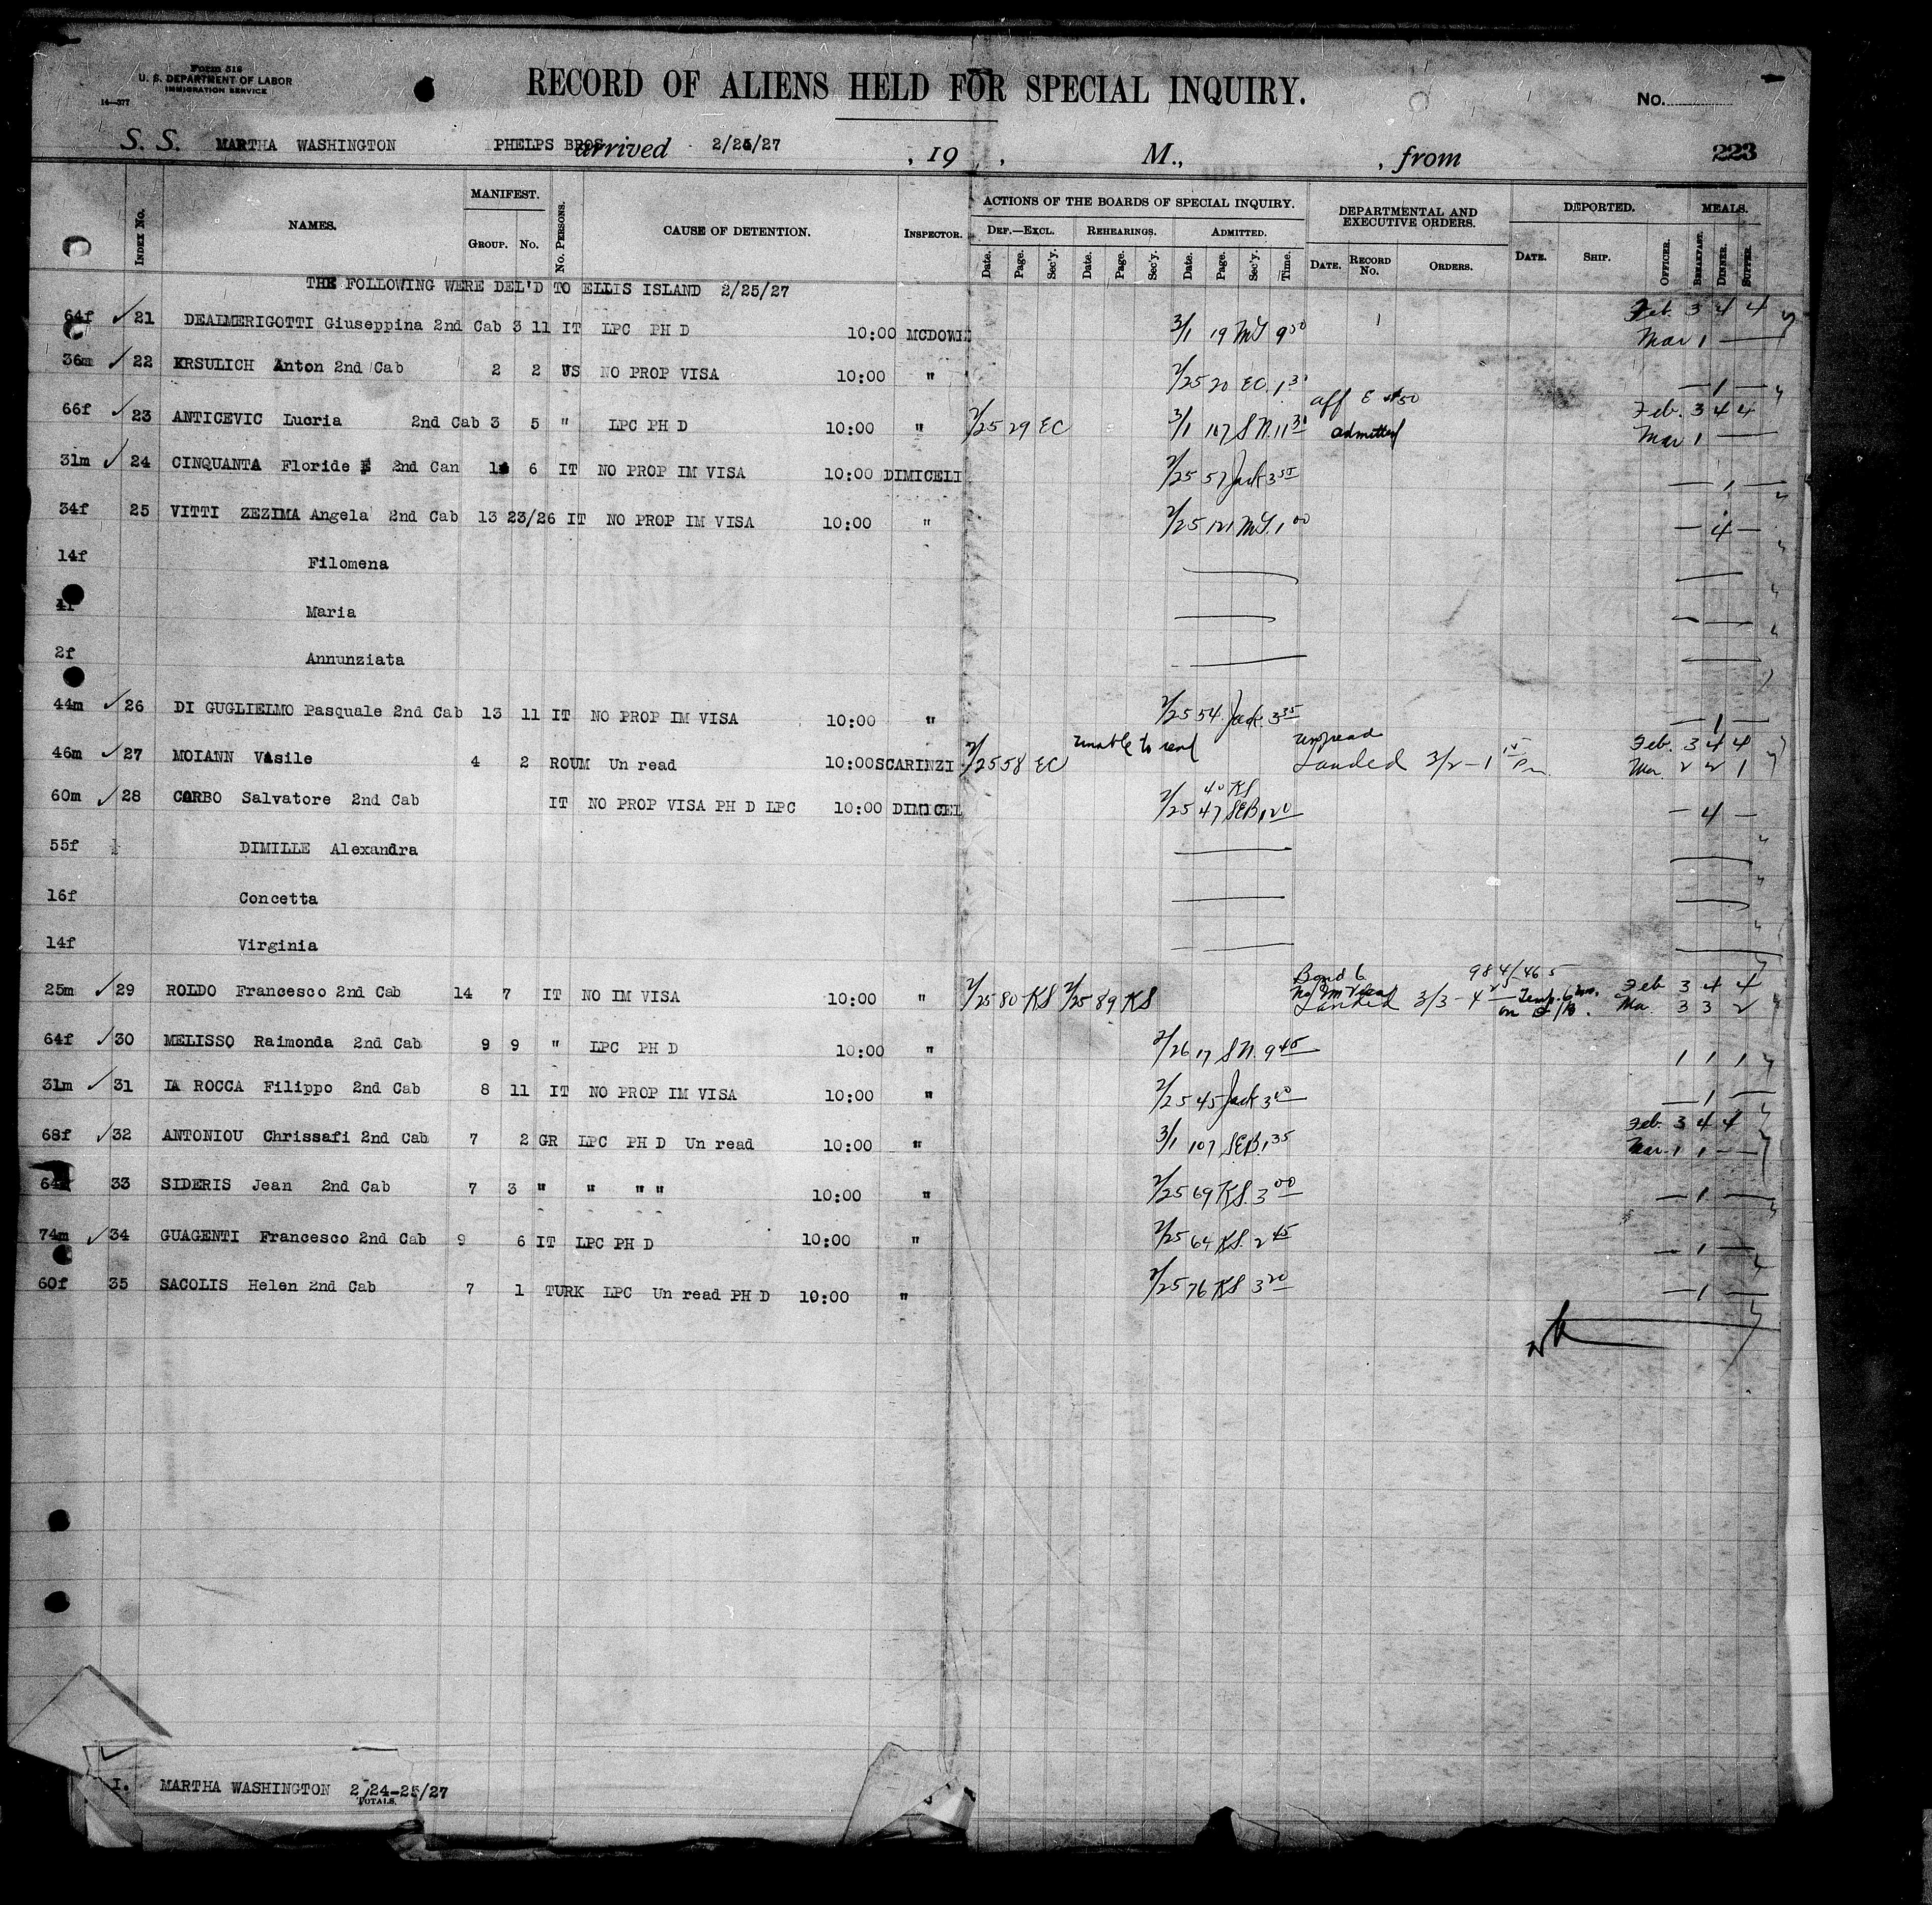 Form 518
U. S. DEPARTMENT OF LABOR
IMMIGRATION SERVICE
14—377
RECORD OF ALIENS HELD FOR SPECIAL INQUIRY.
No.
S. S. MARTHA WASHINGTON PHELPS BROS arrived 2/25/27 , 19 , M., , from 223
INDEX No. NAMES. MANIFEST. GROUP. No. No. PERSONS. CAUSE OF DETENTION. INSPECTOR. ACTIONS OF THE BOARDS OF SPECIAL INQUIRY. DEF.—EXCL. Date. Page. Sec'y. REHEARINGS. Date. Page. Sec'y. ADMITTED. Date. Page. Sec'y. Time. DEPARTMENTAL AND EXECUTIVE ORDERS. DATE. RECORD No. ORDERS. DEPORTED. DATE. SHIP. OFFICER. MEALS. BREAKFAST. DINNER. SUPPER.
THE FOLLOWING WERE DEL'D TO ELLIS ISLAND 2/25/27
64f ✓ 21 DEALMERIGOTTI Giuseppina 2nd Cab 3 11 IT LPC PH D 10:00 MCDOWE 3/1 19 MG 9 50 Feb. 3 4 4
Mar 1 —
36m ✓ 22 KRSULICH Anton 2nd Cab 2 2 US NO PROP VISA 10:00 " 2/25 20 EC 1 30 — 1 —
66f ✓ 23 ANTICEVIC Lucria 2nd Cab 3 5 " LPC PH D 10:00 " 2/25 29 EC 3/1 107 S N. 11 30 aff admitted Feb. 3 4 4
Mar 1 —
31m ✓ 24 CINQUANTA Floride 2nd Can 1 6 IT NO PROP IM VISA 10:00 DIMICELI 2/25 57 Jack 3 55 — 1 —
34f 25 VITTI ZEZIMA Angela 2nd Cab 13 23/26 IT NO PROP IM VISA 10:00 " 2/25 121 MG. 1 00 — 4 —
14f Filomena
4f Maria
2f Annunziata
44m ✓ 26 DI GUGLIELMO Pasquale 2nd Cab 13 11 IT NO PROP IM VISA 10:00 " 2/25 54 Jack 3 35 — 1 —
46m ✓ 27 MOIANN Vasile 4 2 ROUM Un read 10:00 SCARINZI 2/25 58 EC Unable to read unread Landed 3/2 – 1 Pm Feb. 3 4 4
Mar 2 2 1
60m ✓ 28 CORBO Salvatore 2nd Cab IT NO PROP VISA PH D LPC 10:00 DIMICEL 40 KS 2/25 47 SEB 1 20 — 4 —
55f DIMILLE Alexandra
16f Concetta
14f Virginia
25m ✓ 29 ROLDO Francesco 2nd Cab 14 7 IT NO IM VISA 10:00 " 2/25 80 KS 2/25 89 KS Bond 6 984/465 No Im Visa Landed 3/3 – 4 25 Temp. 6 mo. on Feb 3 4 4
Mar. 3 3 2
64f ✓ 30 MELISSO Raimonda 2nd Cab 9 9 " LPC PH D 10:00 " 2/26 17 S N. 9 45 1 1 1
31m ✓ 31 LA ROCCA Filippo 2nd Cab 8 11 IT NO PROP IM VISA 10:00 " 2/25 45 Jack 3 — 1 —
68f ✓ 32 ANTONIOU Chrissafi 2nd Cab 7 2 GR LPC PH D Un read 10:00 " 3/1 107 SEB. 1 35 Feb. 3 4 4
Mar. 1 1 —
64 33 SIDERIS Jean 2nd Cab 7 3 " " " " 10:00 " 2/25 69 KS. 3 00 — 1 —
74m ✓ 34 GUAGENTI Francesco 2nd Cab 9 6 IT LPC PH D 10:00 " 2/25 64 KS. 2 45 — 1 —
60f 35 SACOLIS Helen 2nd Cab 7 1 TURK LPC Un read PH D 10:00 " 2/25 76 KS 3 20 — 1 —
I. MARTHA WASHINGTON 2/24-25/27
TOTALS.